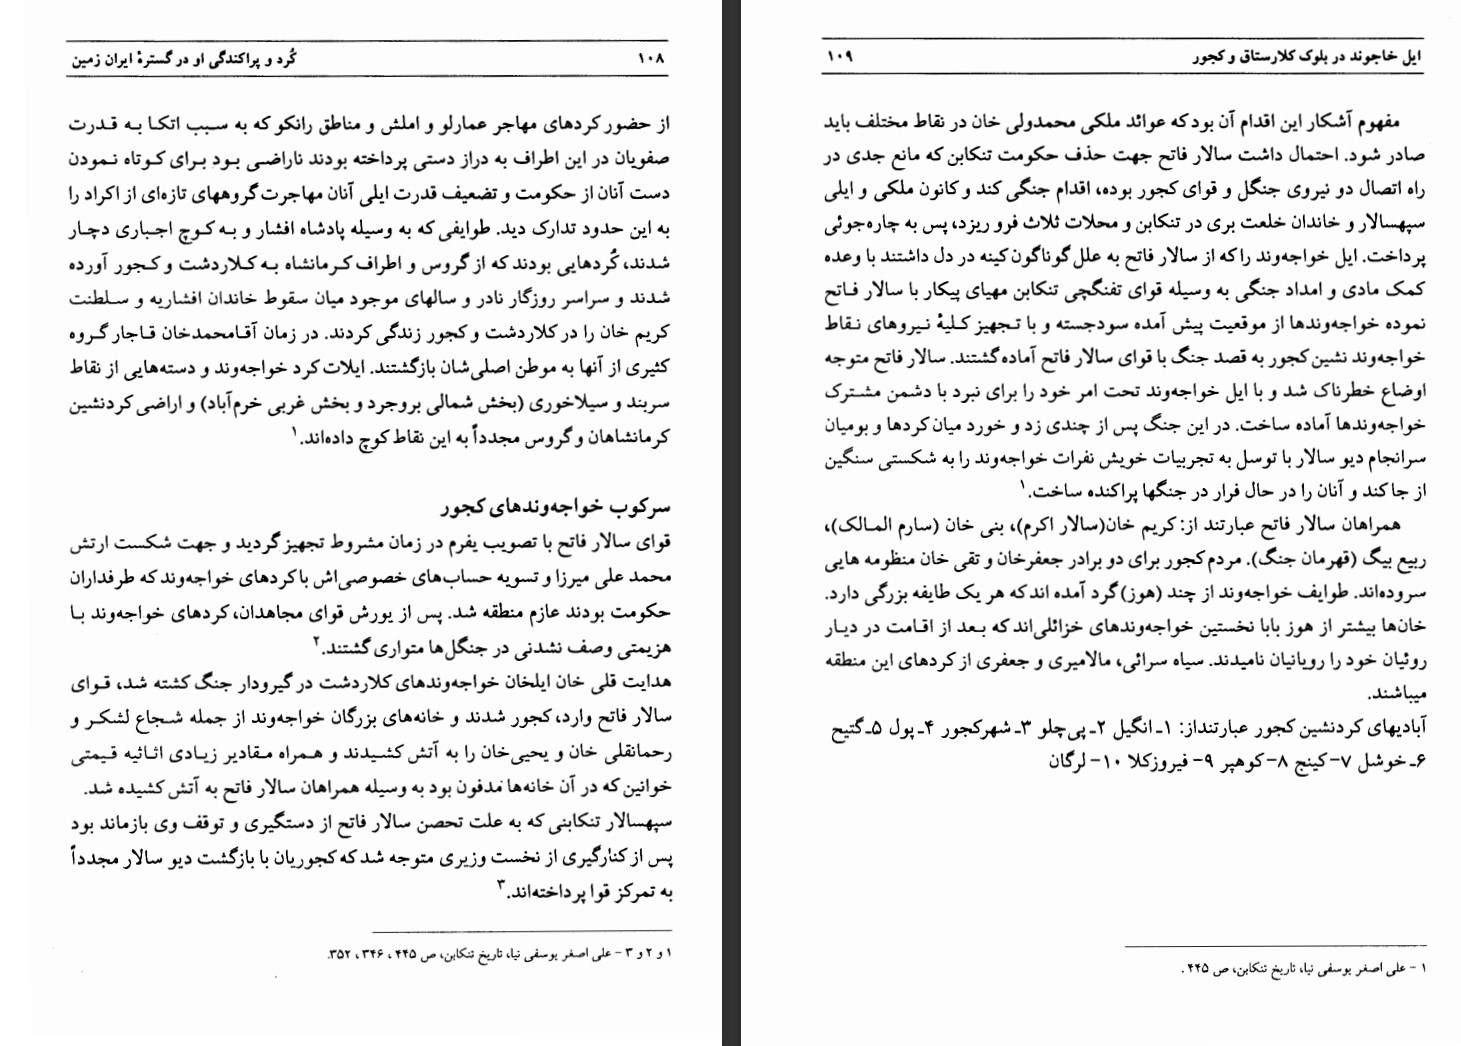 ۱۰۸ کُرد و پراکندگی او در گسترهٔ ایران زمین
از حضور کردهای مهاجر عمارلو و املش و مناطق رانکو که به سبب اتکا به قدرت
صفویان در این اطراف به دراز دستی پرداخته بودند ناراضی بود برای کوتاه نمودن
دست آنان از حکومت و تضعیف قدرت ایلی آنان مهاجرت گروههای تازه‌ای از اکراد را
به این حدود تدارک دید. طوایفی که به وسیله پادشاه افشار و به کوچ اجباری دچار
شدند، کُردهایی بودند که از گروس و اطراف کرمانشاه به کلاردشت و کجور آورده
شدند و سراسر روزگار نادر و سالهای موجود میان سقوط خاندان افشاریه و سلطنت
کریم خان را در کلاردشت و کجور زندگی کردند. در زمان آقامحمدخان قاجار گروه
کثیری از آنها به موطن اصلی‌شان بازگشتند. ایلات کرد خواجه‌وند و دسته‌هایی از نقاط
سربند و سیلاخوری (بخش شمالی بروجرد و بخش غربی خرم‌آباد) و اراضی کردنشین
کرمانشاهان و گروس مجدداً به این نقاط کوچ داده‌اند.۱
سرکوب خواجه‌وندهای کجور
قوای سالار فاتح با تصویب یفرم در زمان مشروط تجهیز گردید و جهت شکست ارتش
محمد علی میرزا و تسویه حساب‌های خصوصی‌اش با کردهای خواجه‌وند که طرفداران
حکومت بودند عازم منطقه شد. پس از یورش قوای مجاهدان، کردهای خواجه‌وند با
هزیمتی وصف نشدنی در جنگل‌ها متواری گشتند.۲
هدایت قلی خان ایلخان خواجه‌وندهای کلاردشت در گیرودار جنگ کشته شد، قوای
سالار فاتح وارد، کجور شدند و خانه‌های بزرگان خواجه‌وند از جمله شجاع لشکر و
رحمانقلی خان و یحیی‌خان را به آتش کشیدند و همراه مقادیر زیادی اثاثیه قیمتی
خوانین که در آن خانه‌ها مدفون بود به وسیله همراهان سالار فاتح به آتش کشیده شد.
سپهسالار تنکابنی که به علت تحصن سالار فاتح از دستگیری و توقف وی بازماند بود
پس از کنارگیری از نخست وزیری متوجه شد که کجوریان با بازگشت دیو سالار مجدداً
به تمرکز قوا پرداخته‌اند.۳
۱ و ۲ و ۳ - علی اصغر یوسفی نیا، تاریخ تنکابن، ص ۴۴۵، ۳۴۶، ۳۵۲.
ایل خاجوند در بلوک کلارستاق و کجور ۱۰۹
مفهوم آشکار این اقدام آن بود که عوائد ملکی محمدولی خان در نقاط مختلف باید
صادر شود. احتمال داشت سالار فاتح جهت حذف حکومت تنکابن که مانع جدی در
راه اتصال دو نیروی جنگل و قوای کجور بوده، اقدام جنگی کند و کانون ملکی و ایلی
سپهسالار و خاندان خلعت بری در تنکابن و محلات ثلاث فرو ریزد، پس به چاره‌جوئی
پرداخت. ایل خواجه‌وند را که از سالار فاتح به علل گوناگون کینه در دل داشتند با وعده
کمک مادی و امداد جنگی به وسیله قوای تفنگچی تنکابن مهیای پیکار با سالار فاتح
نموده خواجه‌وندها از موقعیت پیش آمده سودجسته و با تجهیز کلیهٔ نیروهای نقاط
خواجه‌وند نشین کجور به قصد جنگ با قوای سالار فاتح آماده گشتند. سالار فاتح متوجه
اوضاع خطرناک شد و با ایل خواجه‌وند تحت امر خود را برای نبرد با دشمن مشترک
خواجه‌وندها آماده ساخت. در این جنگ پس از چندی زد و خورد میان کردها و بومیان
سرانجام دیو سالار با توسل به تجربیات خویش نفرات خواجه‌وند را به شکستی سنگین
از جا کند و آنان را در حال فرار در جنگها پراکنده ساخت.۱
همراهان سالار فاتح عبارتند از: کریم خان(سالار اکرم)، بنی خان (سارم المالک)،
ربیع بیگ (قهرمان جنگ). مردم کجور برای دو برادر جعفرخان و تقی خان منظومه هایی
سروده‌اند. طوایف خواجه‌وند از چند (هوز) گرد آمده اند که هر یک طایفه بزرگی دارد.
خان‌ها بیشتر از هوز بابا نخستین خواجه‌وندهای خزائلی‌اند که بعد از اقامت در دیار
روئیان خود را رویانیان نامیدند. سیاه سرائی، مالامیری و جعفری از کردهای این منطقه
میباشند.
آبادیهای کردنشین کجور عبارتنداز: ۱ـ انگیل ۲ـ پی‌چلو ۳ـ شهرکجور ۴ـ پول ۵ـ گتیح
۶ـ خوشل ۷- کینج ۸- کوهپر ۹- فیروزکلا ۱۰- لرگان
۱ - علی اصغر یوسفی نیا، تاریخ تنکابن، ص ۴۴۵.